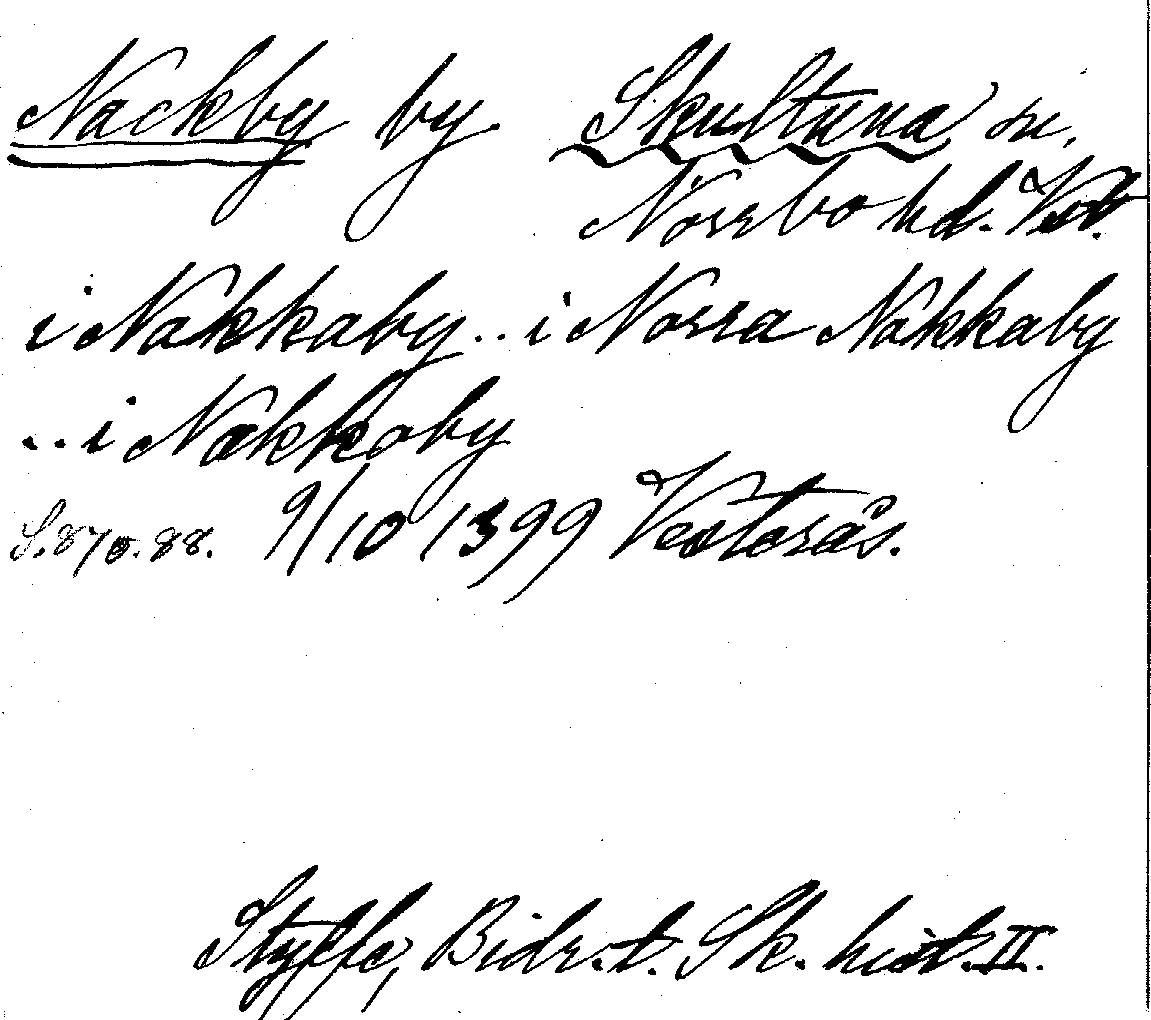 Nackby by Skultuna sn,
Norrbo hd. Vstl.
i Nakkaby .. i Norra Nakkaby
.. i Nakkaby
S. 87, 88. 9/10 1399 Vesterås.
Styffe, Bidr. t. Sk. hist. II.